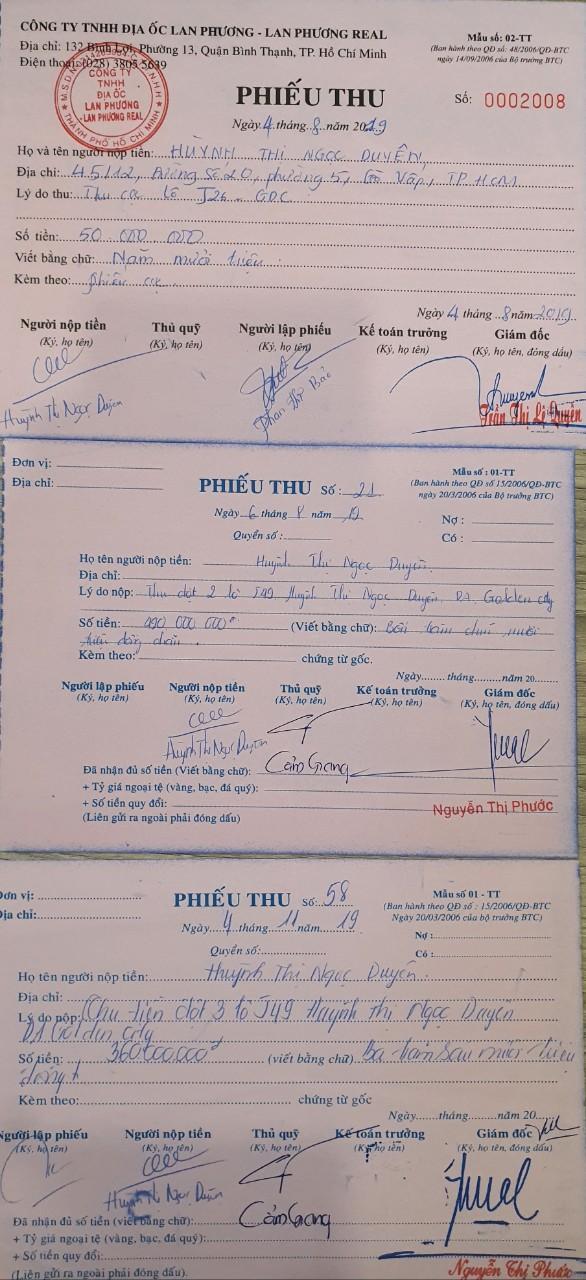 CÔNG TY TNHH ĐỊA ỐC LAN PHƯƠNG - LAN PHƯƠNG REAL
Địa chỉ: 132 Bình Lợi, Phường 13, Quận Bình Thạnh, TP. Hồ Chí Minh
Điện thoại: (028) 3805 5639
Mẫu số: 02-TT
(Ban hành theo QĐ số: 48/2006/QĐ-BTC
ngày 14/09/2006 của Bộ trưởng BTC)
CÔNG TY
TNHH
ĐỊA ỐC
LAN PHƯƠNG
LAN PHƯƠNG REAL
THÀNH PHỐ HỒ CHÍ MINH
PHIẾU THU
Số: 0002008
Ngày 4 tháng 8 năm 2019
Họ và tên người nộp tiền: HUỲNH THỊ NGỌC DUYÊN
Địa chỉ: 45/12, Đường Số 20, phường 5, Gò Vấp, TP HCM
Lý do thu: Thu cọc lô J26 - GDC
Số tiền: 50 000 000
Viết bằng chữ: Năm mươi triệu
Kèm theo: phiếu cọc
Ngày 4 tháng 8 năm 2019
Người nộp tiền Thủ quỹ Người lập phiếu Kế toán trưởng Giám đốc
(Ký, họ tên) (Ký, họ tên) (Ký, họ tên) (Ký, họ tên) (Ký, họ tên, đóng dấu)
Huỳnh Thị Ngọc Duyên
Trần Thị Lệ Quyên
Đơn vị:
Địa chỉ:
PHIẾU THU Số: 21
Mẫu số : 01-TT
(Ban hành theo QĐ số 15/2006/QĐ-BTC
ngày 20/3/2006 của Bộ trưởng BTC)
Ngày 6 tháng 8 năm 19
Quyển số:
Nợ :
Có :
Họ tên người nộp tiền: Huỳnh Thị Ngọc Duyên
Địa chỉ:
Lý do nộp: Thu đợt 2 lô J49 Huỳnh Thị Ngọc Duyên DA Golden city
Số tiền: 490 000 000đ (Viết bằng chữ): Bốn trăm chín mươi
triệu đồng chẵn
Kèm theo: chứng từ gốc.
Ngày.........tháng.........năm 20......
Người lập phiếu Người nộp tiền Thủ quỹ Kế toán trưởng Giám đốc
(Ký, họ tên) (Ký, họ tên) (Ký, họ tên) (Ký, họ tên) (Ký, họ tên, đóng dấu)
Huỳnh Thị Ngọc Duyên
Đã nhận đủ số tiền (Viết bằng chữ): Cẩm Giang
+ Tỷ giá ngoại tệ (vàng, bạc, đá quý):
+ Số tiền quy đổi:
(Liên gửi ra ngoài phải đóng dấu)
Nguyễn Thị Phước
Đơn vị:
Địa chỉ:
PHIẾU THU Số: 58
Mẫu số 01 - TT
(Ban hành theo QĐ số : 15/2006/QĐ-BTC
Ngày 20/03/2006 của bộ trưởng BTC)
Ngày 4 tháng 11 năm 19
Quyển số:
Nợ :
Có :
Họ tên người nộp tiền: Huỳnh Thị Ngọc Duyên
Địa chỉ:
Lý do nộp: Thu tiền đợt 3 lô J49 Huỳnh Thị Ngọc Duyên
DA Golden City
Số tiền: 360.000.000đ (viết bằng chữ) Ba trăm sáu mươi triệu
đồng
Kèm theo: chứng từ gốc
Ngày.......tháng.........năm 20......
Người lập phiếu Người nộp tiền Thủ quỹ Kế toán trưởng Giám đốc
(Ký, họ tên) (Ký, họ tên) (Ký, họ tên) (Ký, họ tên) (Ký, họ tên, đóng dấu)
Huỳnh Thị Ngọc Duyên
Đã nhận đủ số tiền (viết bằng chữ): Cẩm Giang
+ Tỷ giá ngoại tệ (vàng, bạc, đá quý):
+ Số tiền quy đổi:
(Liên gửi ra ngoài phải đóng dấu)
Nguyễn Thị Phước